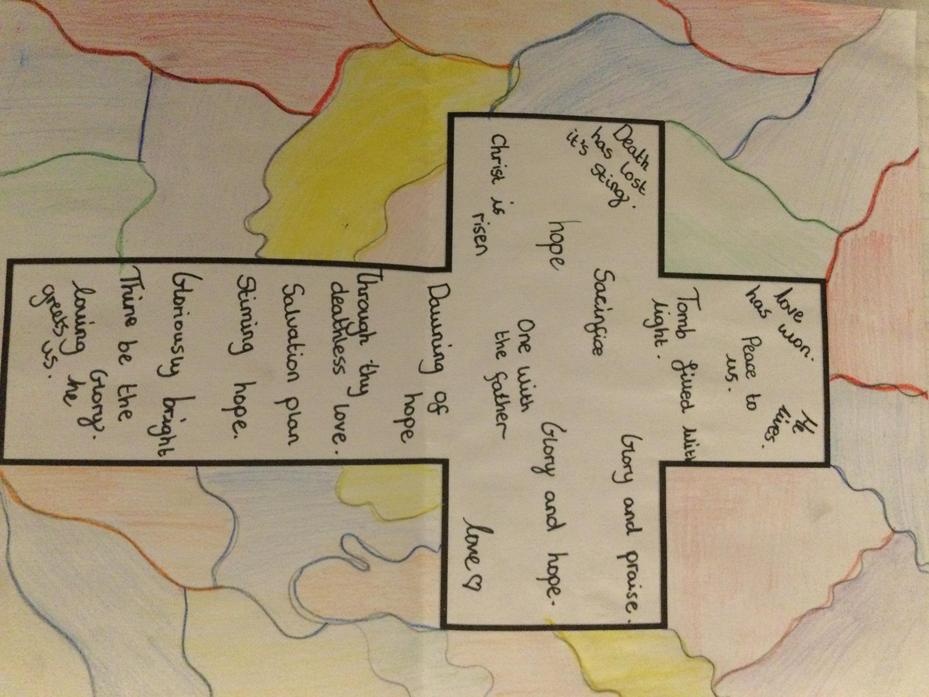 love
has won.
He
lives.
Peace to
us.
Tomb filled with
light.
Death
has lost
it's sting.
Glory and praise.
Sacrifice
hope
Glory and hope.
One with
the father
Christ is
risen
love ♡
Dawning of
hope
Through thy
deathless love.
Salvation plan
hope.
Gloriously bright
Thine be the
Glory.
loving he
greets us.